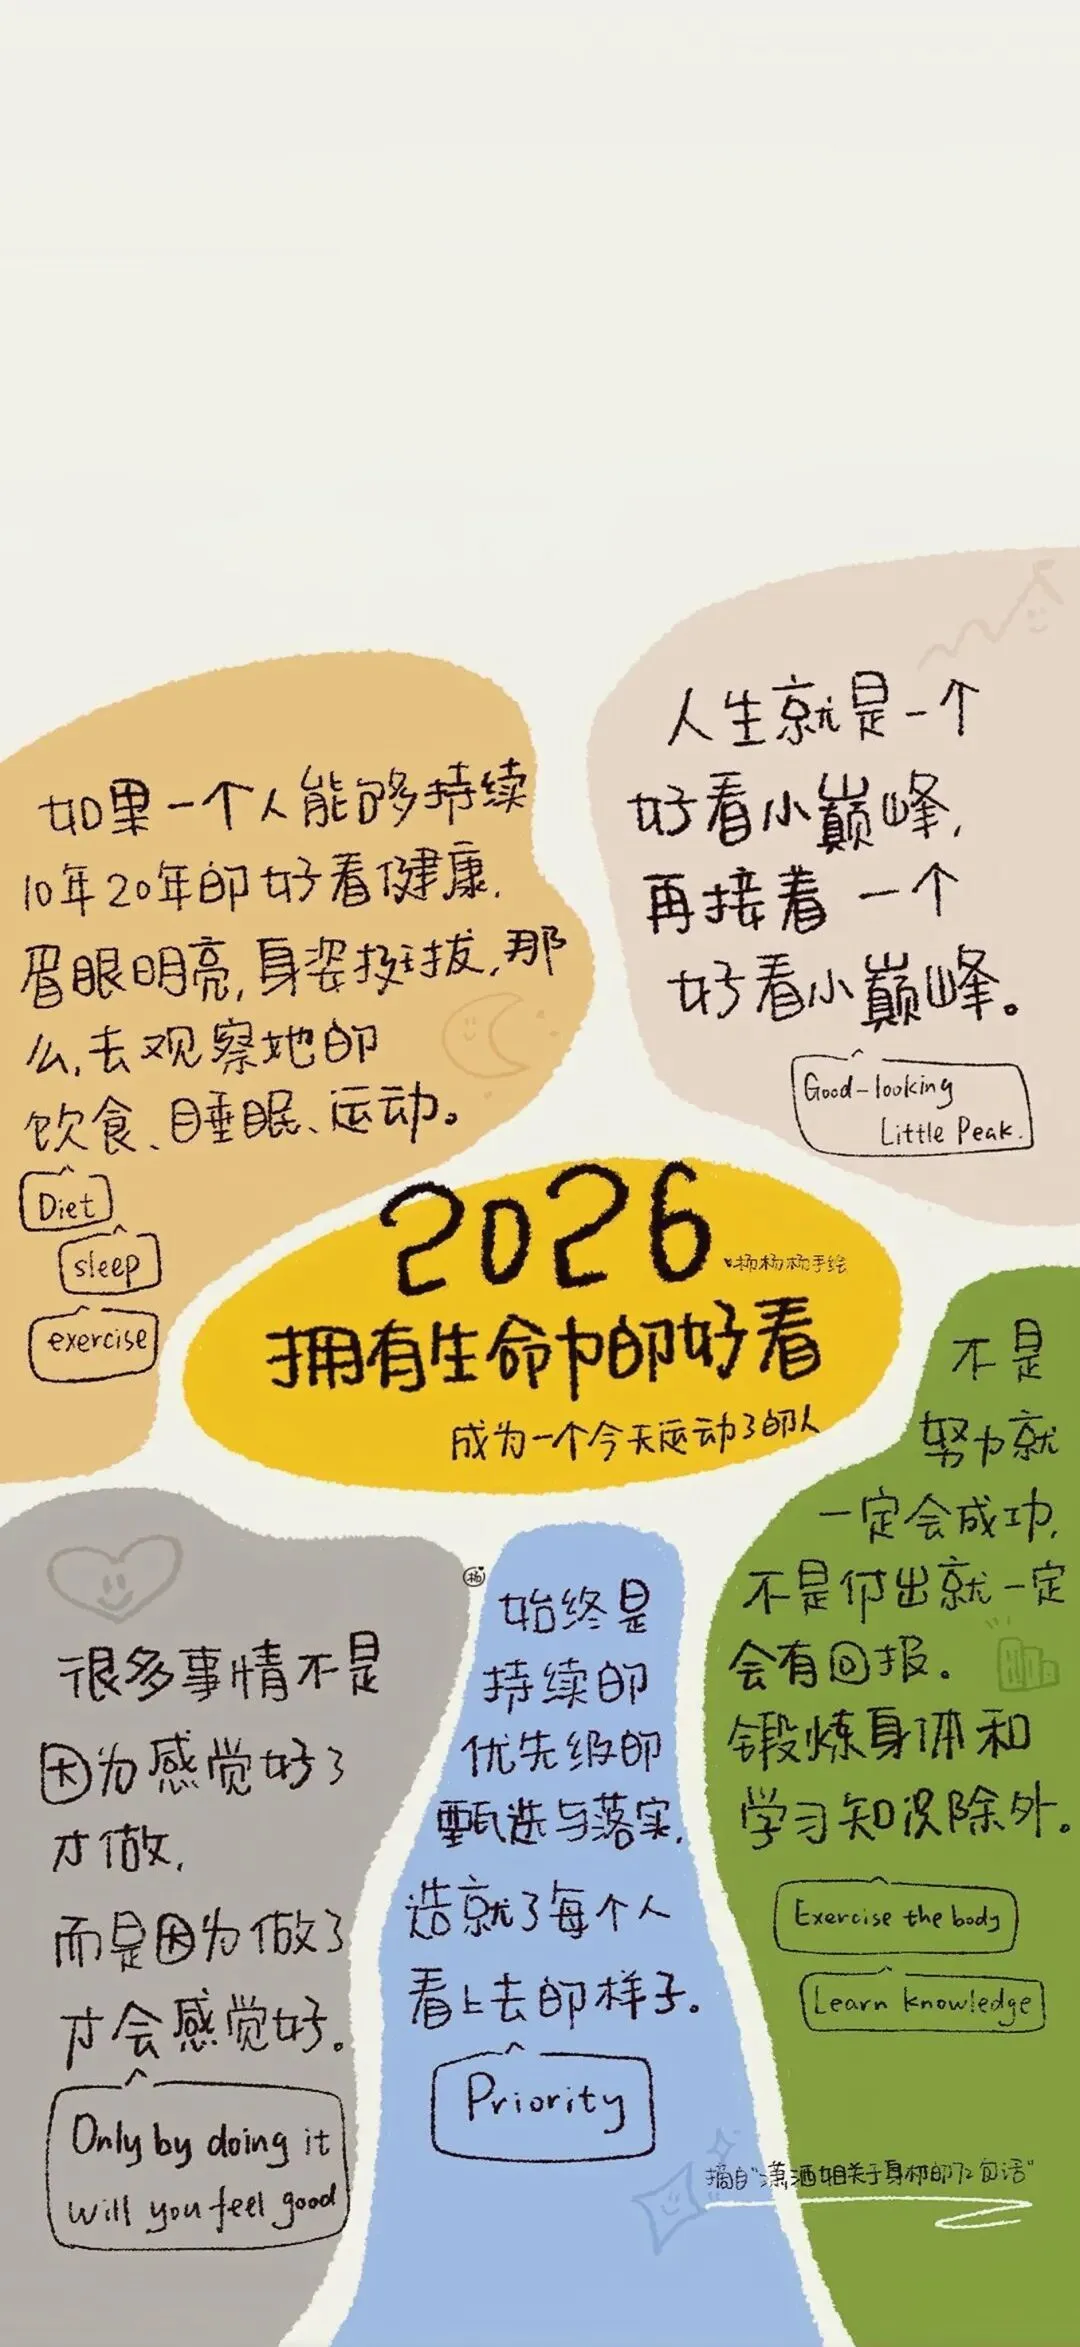 人生就是一个
好看小巅峰,
再接着一个
好看小巅峰。
Good-looking
Little Peak.
如果一个人能够持续
10年20年的好看健康,
眉眼明亮,身姿挺拔,那
么,去观察她的
饮食、睡眠、运动。
Diet
sleep
exercise
2026
杨杨杨手绘
拥有生命中的好看
成为一个今天运动了的人
不是
努力就
一定会成功,
不是付出就一定
会有回报。
锻炼身体和
学习知识除外。
Exercise the body
Learn knowledge
很多事情不是
因为感觉好了
才做,
而是因为做了
才会感觉好。
Only by doing it
will you feel good
杨
始终是
持续的
优先级的
甄选与落实,
造就了每个人
看上去的样子。
Priority
摘自"潇洒姐关于身材的72句话"